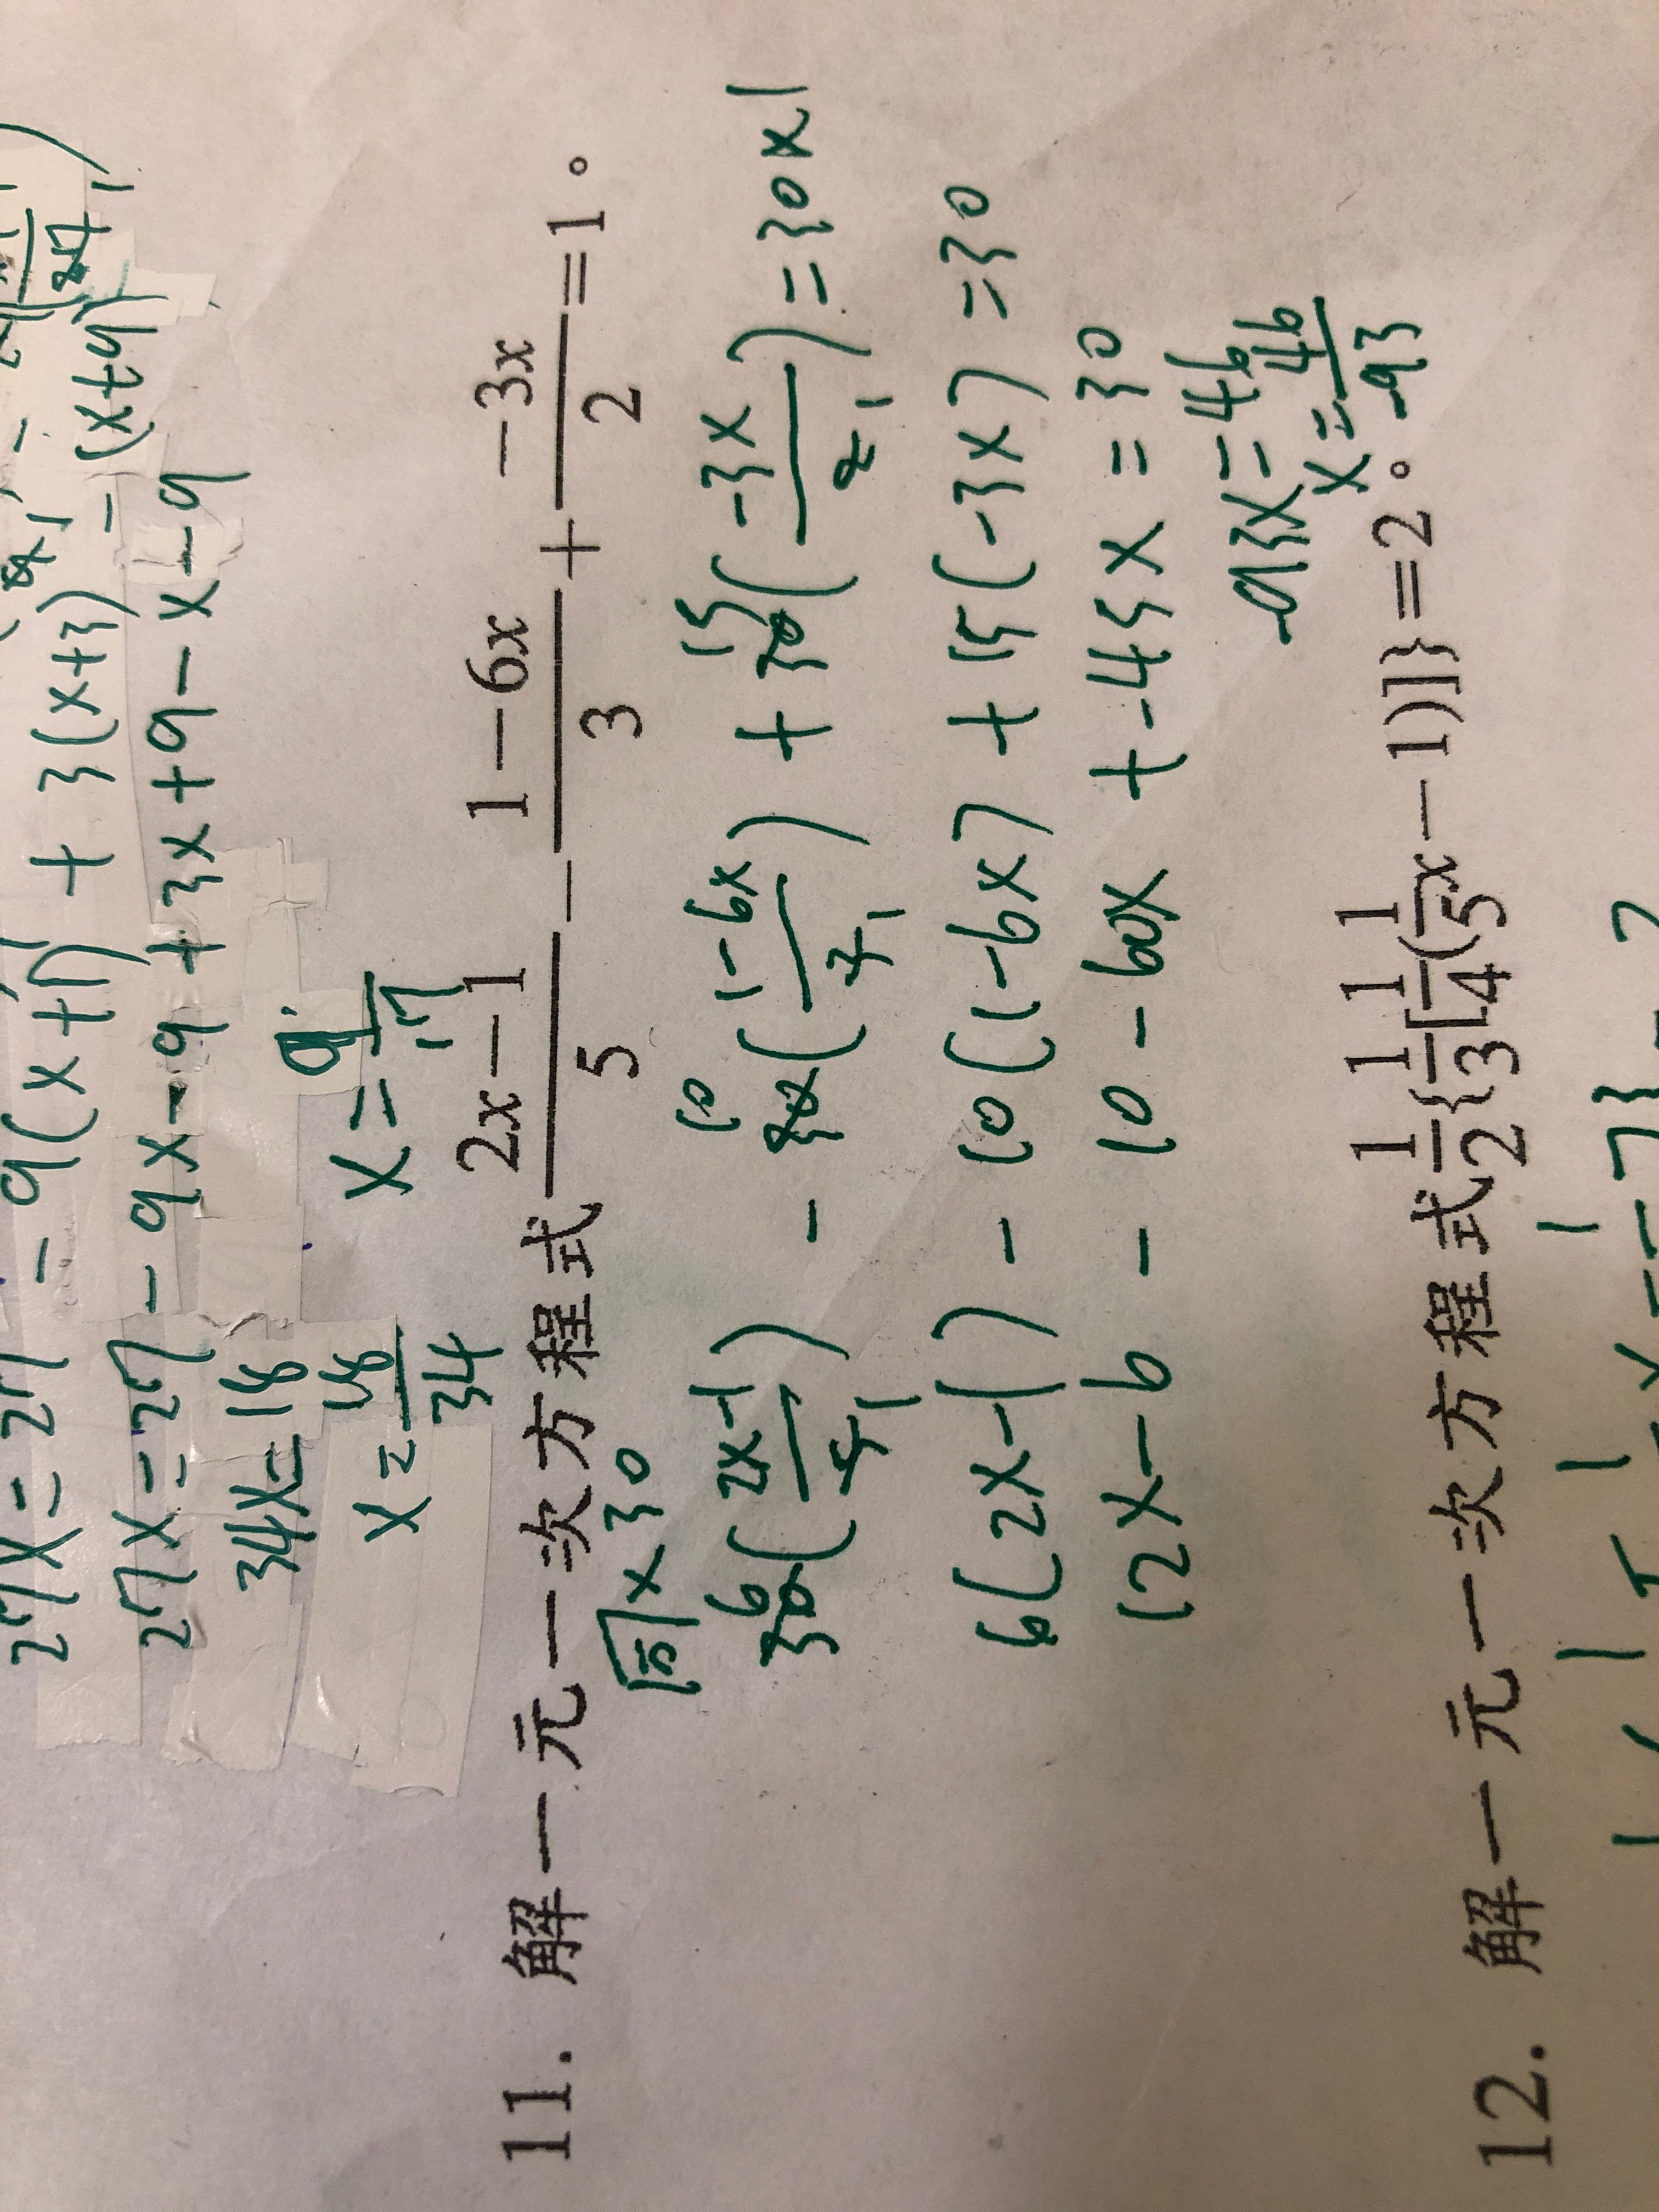 27x = 27 - 9(x+1) + 3(x+3) - (x+9)
27x = 27 - 9x - 9 + 3x + 9 - x - 9
34x = 18
x = 18/34 x = 9/17
11. 解一元一次方程式 (2x-1)/5 - (1-6x)/3 + (-3x)/2 = 1。
同x30
30 6 ((2x-1)/5 1) - 30 10 ((1-6x)/3 1) + 30 15 ((-3x)/2 1) = 30x1
6(2x-1) - 10(1-6x) + 15(-3x) = 30
12x-6 - 10 - 60x + -45x = 30
-93x = 46
x = 46/-93
12. 解一元一次方程式 1/2{1/3[1/4(1/5x-1)]}=2。